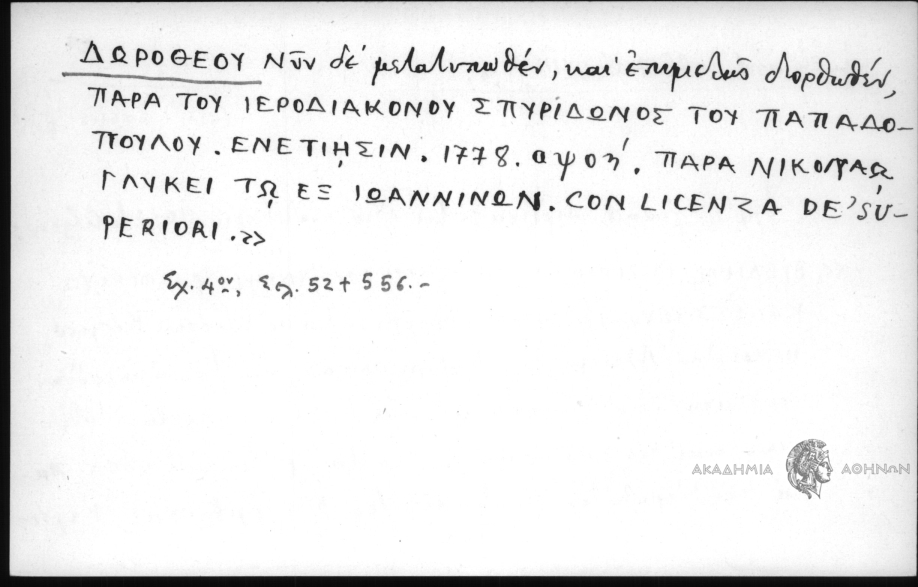 ΔΩΡΟΘΕΟΥ Νῦν δέ μετατυπωθέν, καί ἐπιμελῶς διορθωθέν,
ΠΑΡΑ ΤΟΥ ΙΕΡΟΔΙΑΚΟΝΟΥ ΣΠΥΡΙΔΩΝΟΣ ΤΟΥ ΠΑΠΑΔΟ-
ΠΟΥΛΟΥ. ΕΝΕΤΙΗΣΙΝ. 1778. αψοή. ΠΑΡΑ ΝΙΚΟΛΑΩ
ΓΛΥΚΕΙ Τῼ ΕΞ ΙΩΑΝΝΙΝΩΝ. CON LICENZA DE' SU-
PERIORI.»
Σχ. 4ον, Σελ. 52 + 556.-
ΑΚΑΔΗΜΙΑ ΑΘΗΝΩΝ